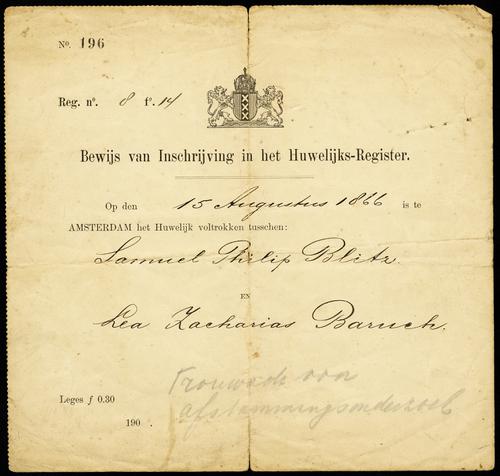 No. 196
Reg. no. 8 fo. 14
Bewijs van Inschrijving in het Huwelijks-Register.
Op den 15 Augustus 1866 is te
AMSTERDAM het Huwelijk voltrokken tusschen:
Samuel Philip Blitz.
EN
Lea Zacharias Baruch.
Trouwacte voor
afstammingsonderzoek
Leges ƒ 0.30
190 .